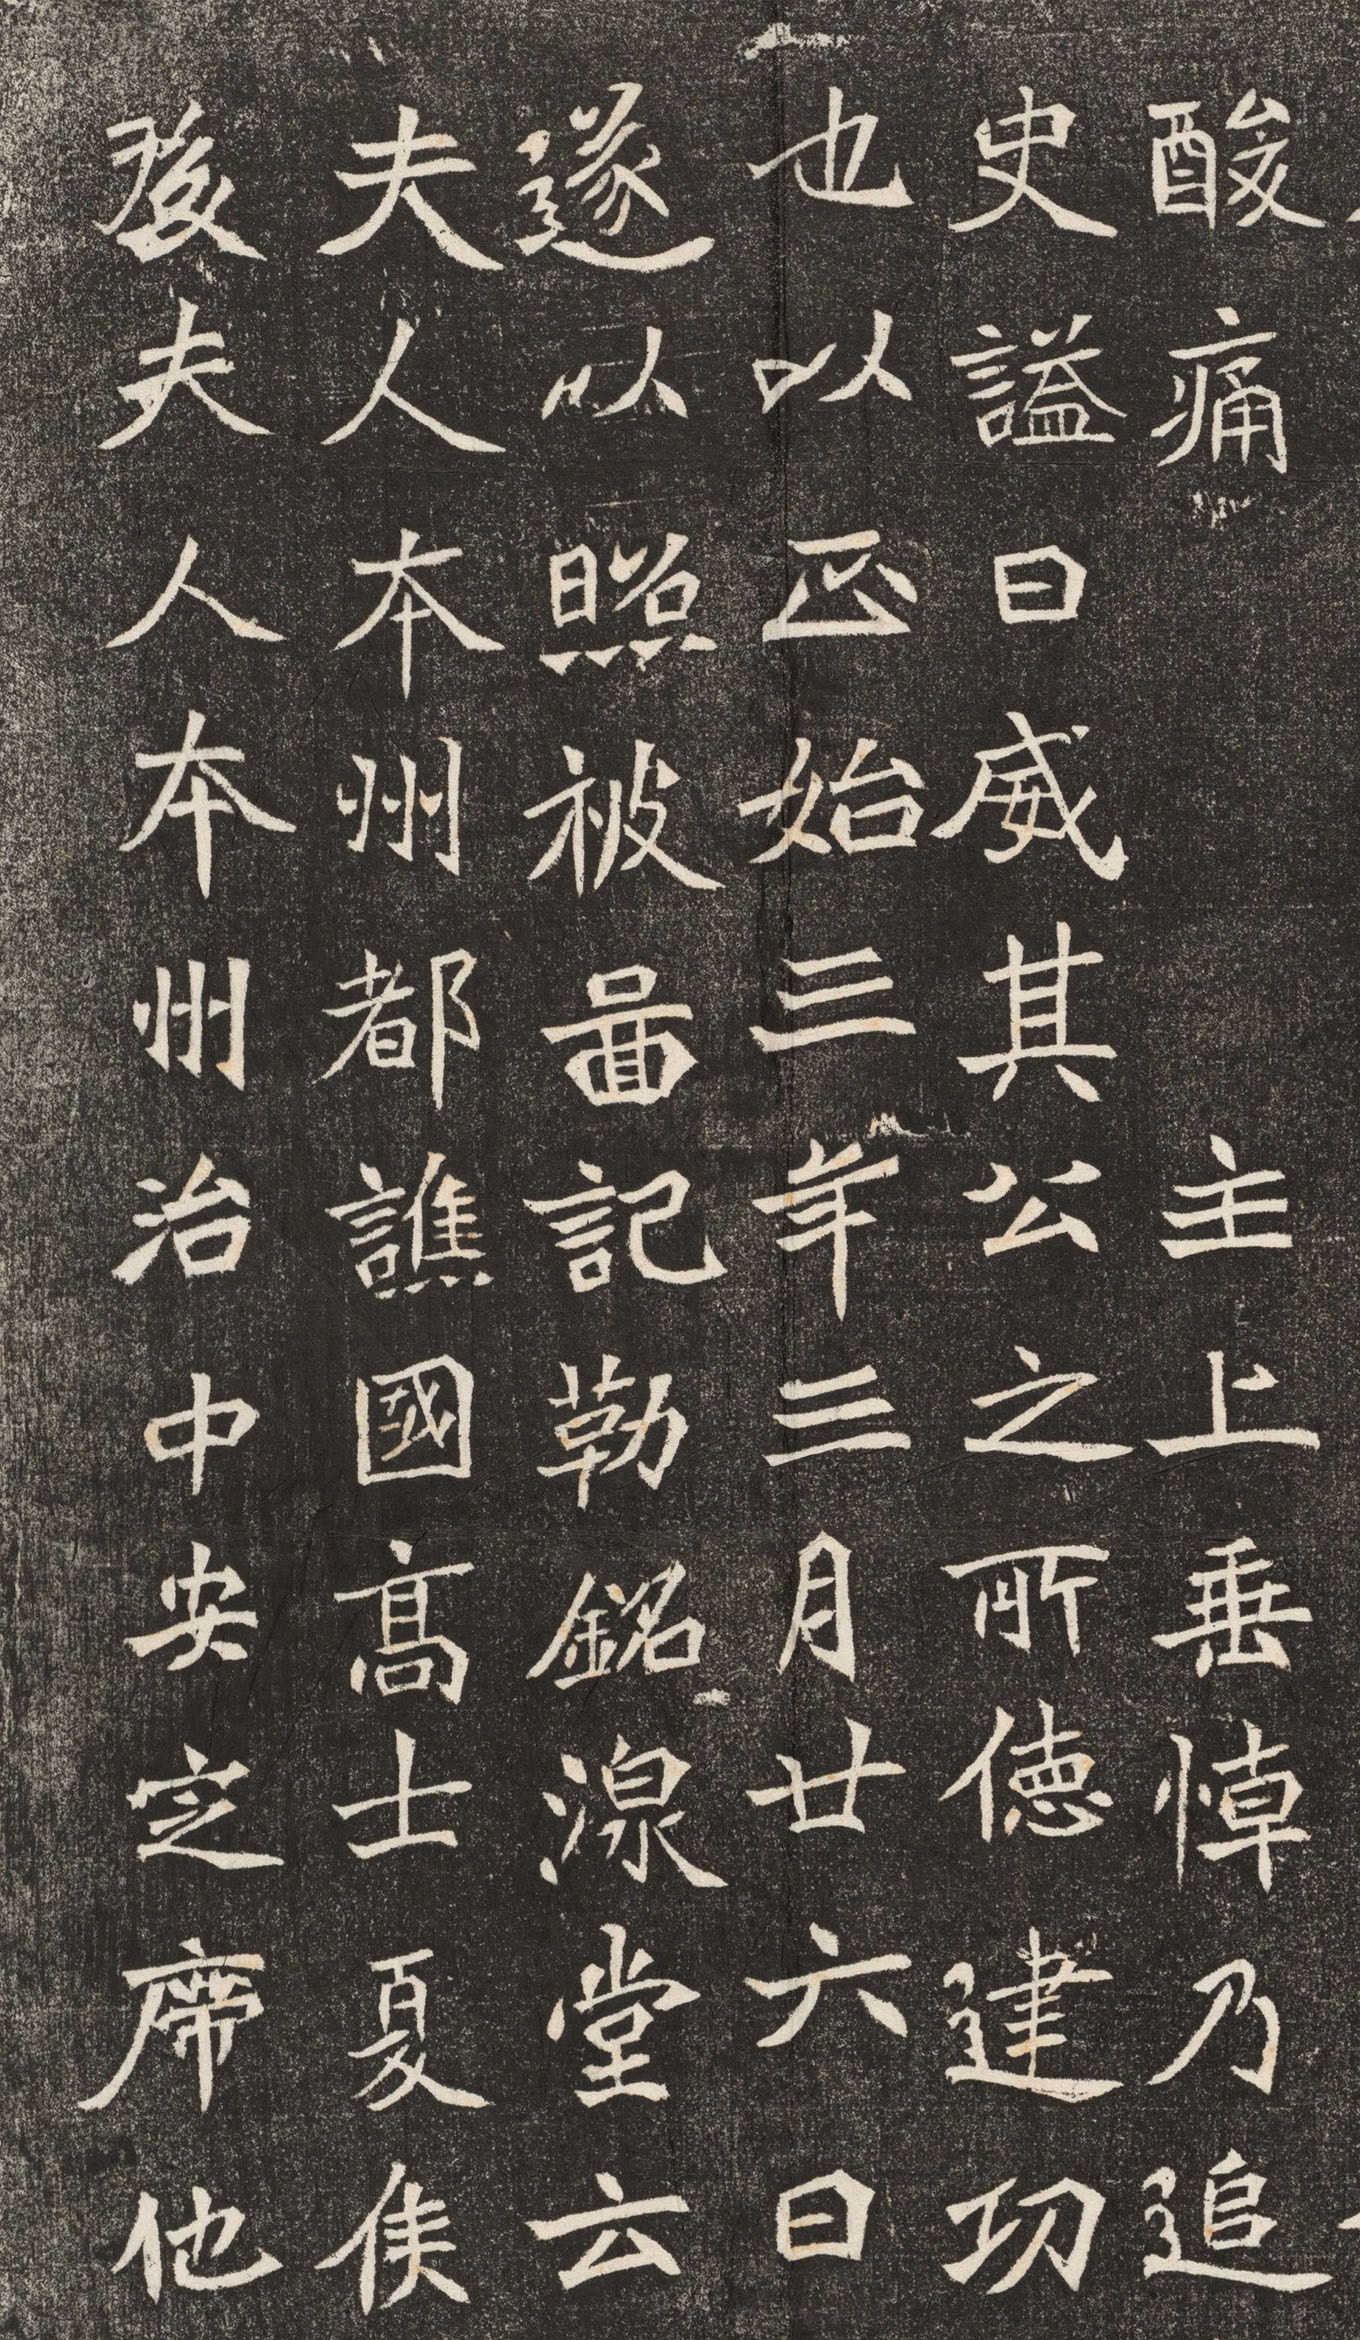 酸痛主上垂悼乃追
史謚曰威其公之所德建功
也以正始三年三月廿六日
遂以照被啚記勒銘湶堂云
夫人本州都譙國高士夏侯
後夫人本州治中安定席他